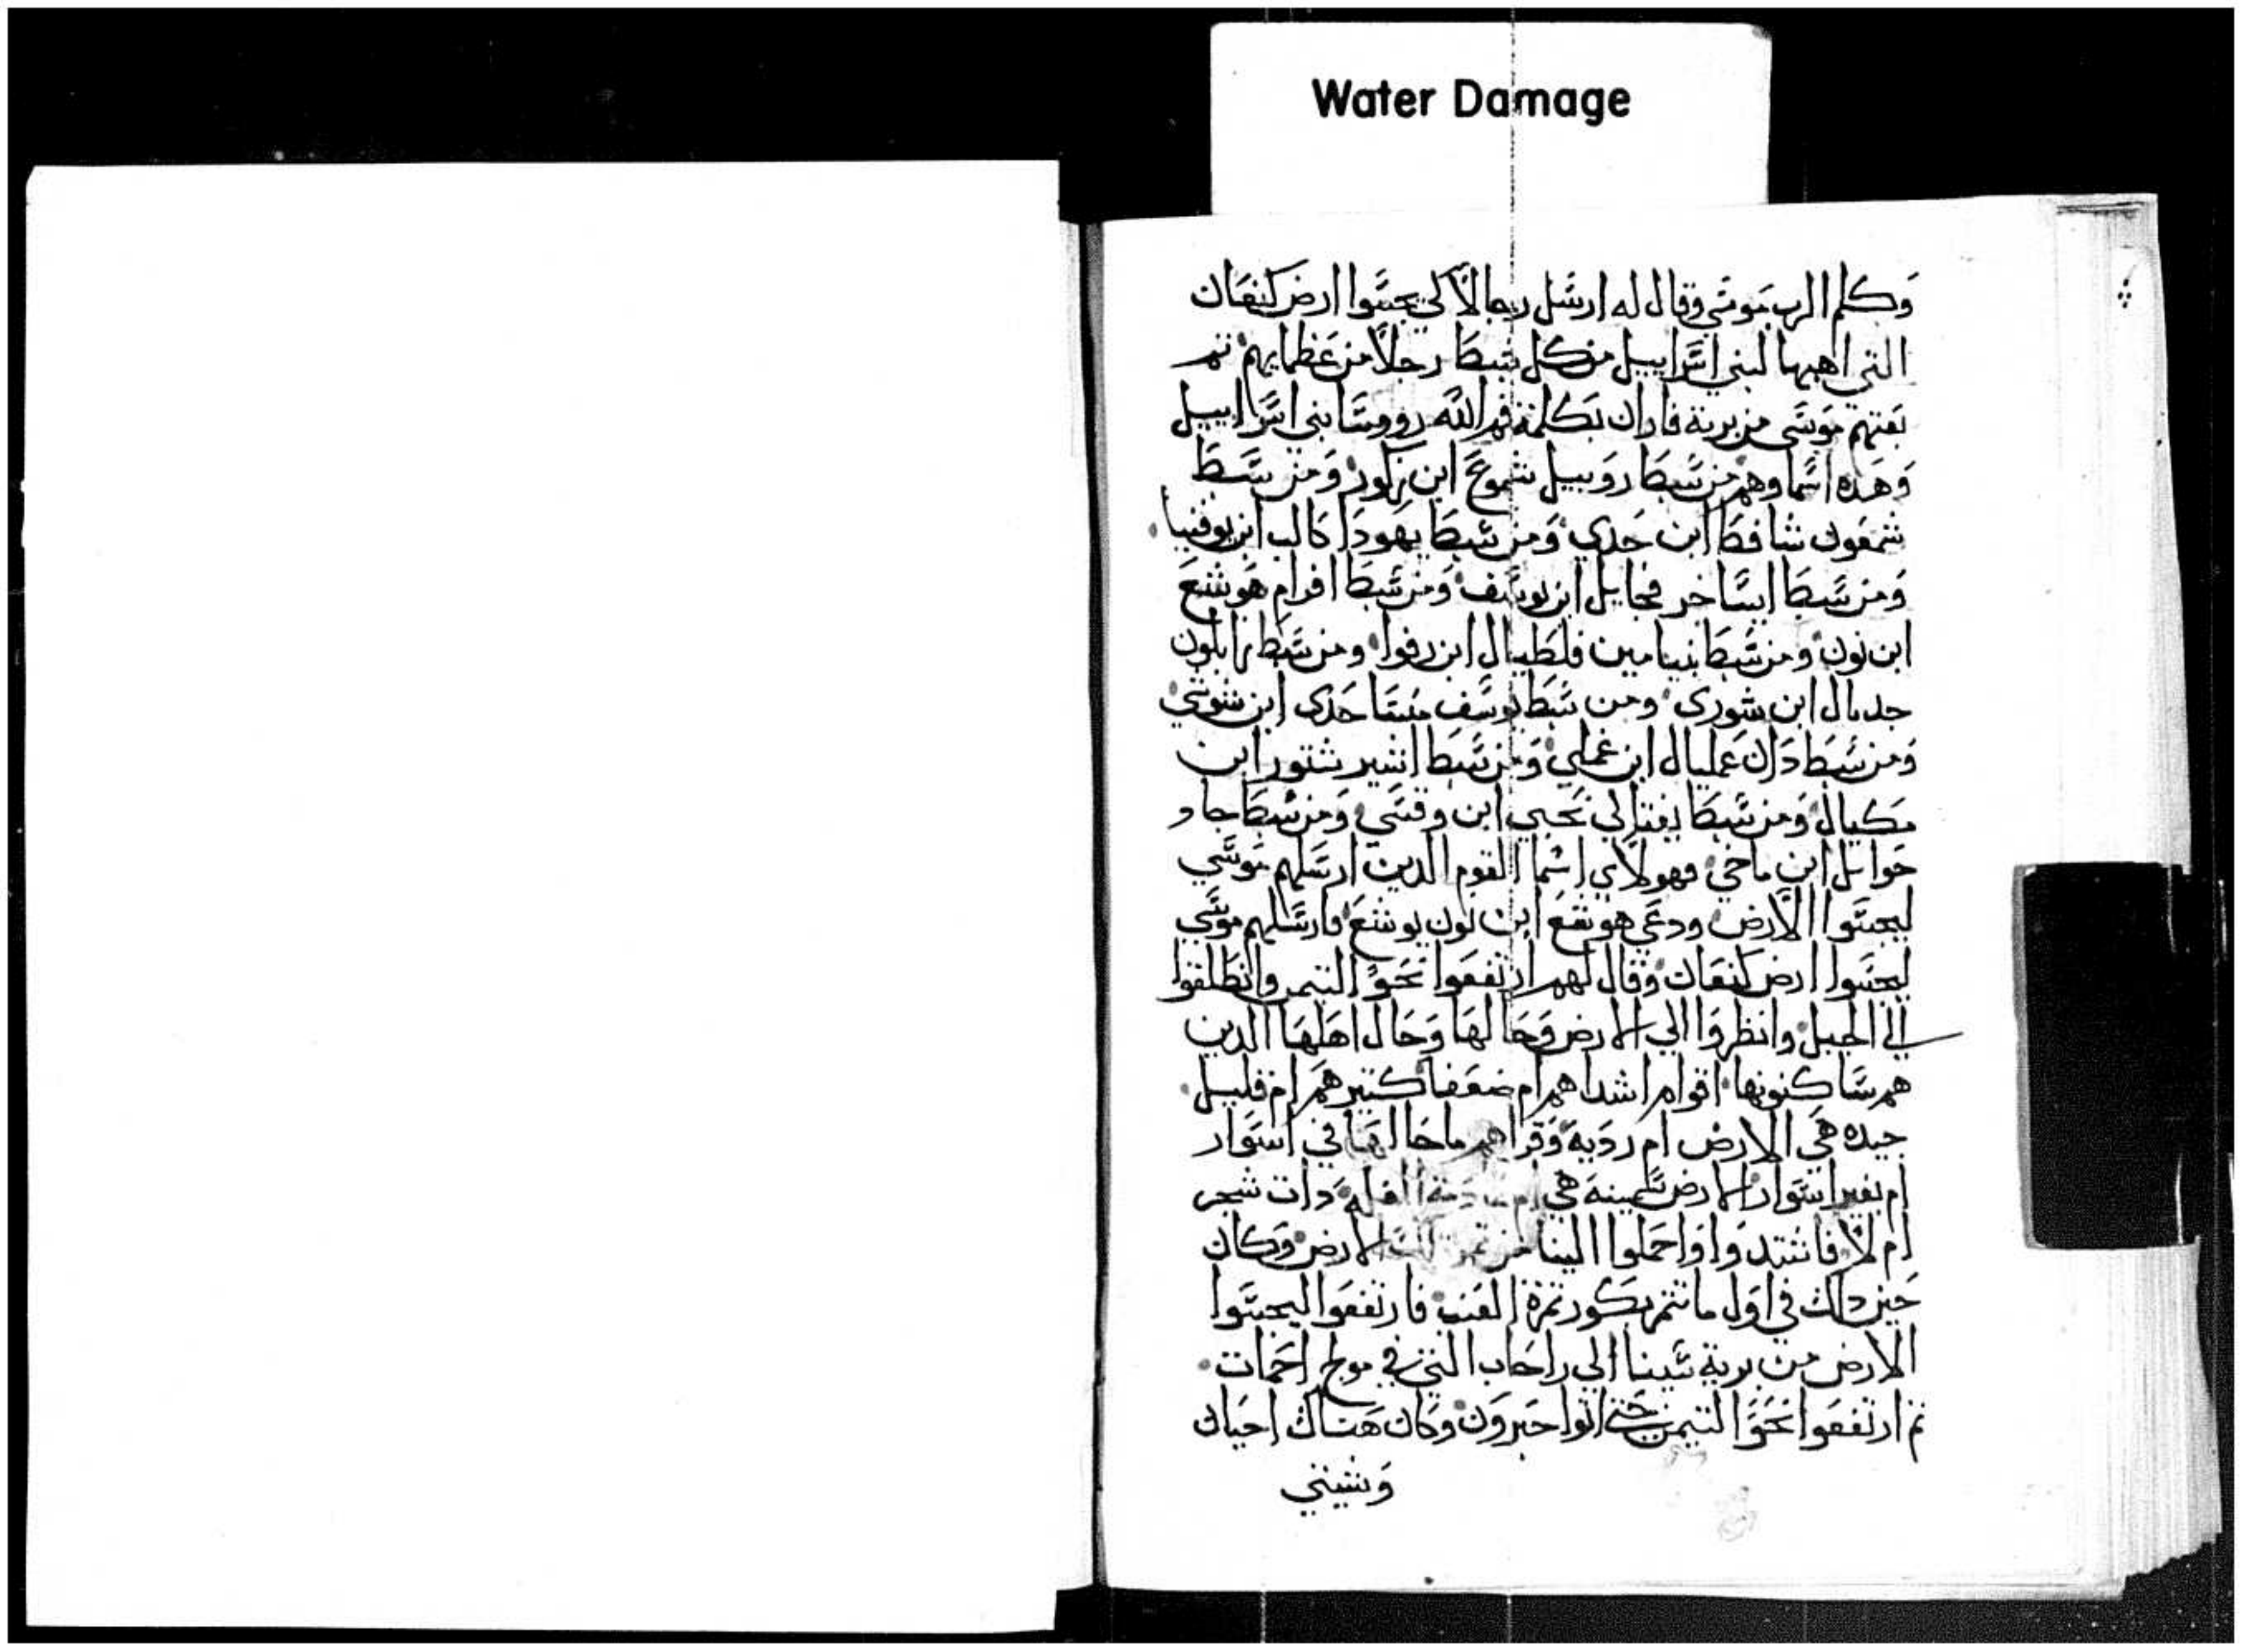 Water Damage
وكلم الرب موسي وقال له ارسل رجالاً لكي يجسوا ارض كنعان
التي اهبها لبني اسراييل من كل سبط رجلاً من عظمايهم
موسي من برية فاران بكلمة فم الله رووسا بني اسراييل
وهذه اسماوهم من سبط روبيل شموع ابن زكور ومن سبط
شمعون شافط ابن حدي ومن سبط يهودا كالب ابن يوفنيا
ومن سبط ايساخر فحايل ابن يوسف ومن سبط افرام هوشع
ابن نون ومن سبط بنيامين فلطيال ابن رفوا ومن سبط زابلون
جديال ابن شوري ومن سبط يوسف منسا حدي ابن شوشي
ومن سبط دان عمليال ابن غملي ومن سبط اشير شتور ابن
مكيال ومن سبط يفتالي نحبي ابن وفسي ومن سبط جاد
حوايل ابن ماخي فهولاي اسما القوم الدين ارسلهم موسي
ليجسوا الارض ودعي هوشع ابن نون يوشع فارسلهم موسي
ليجسوا ارض كنعان وقال لهم ارتفعوا نحو التيمن وانطلقوا
الي الجبل وانظروا الي الارض وحالها وحال اهلها الدين
هم ساكنونها اقوام اشدا هم ام ضعفا كتير هم ام قليل
جيده هي الارض ام رديه وقراهم ما حالها في اسوار
ام بغير اسوار الارض سمينه هي ام الغله دات شجر
ام لا فاشتدوا واحملوا الينا من تمر الارض وكان
حين دلك في اول ما تتم بكور تمرة العنب فارتفعوا ليجسوا
الارض من برية سينا الي راحاب التي في مولج احمات
تم ارتفعوا نحو التيمن حتي اتوا حبرون وكان هناك احيان
وشيني